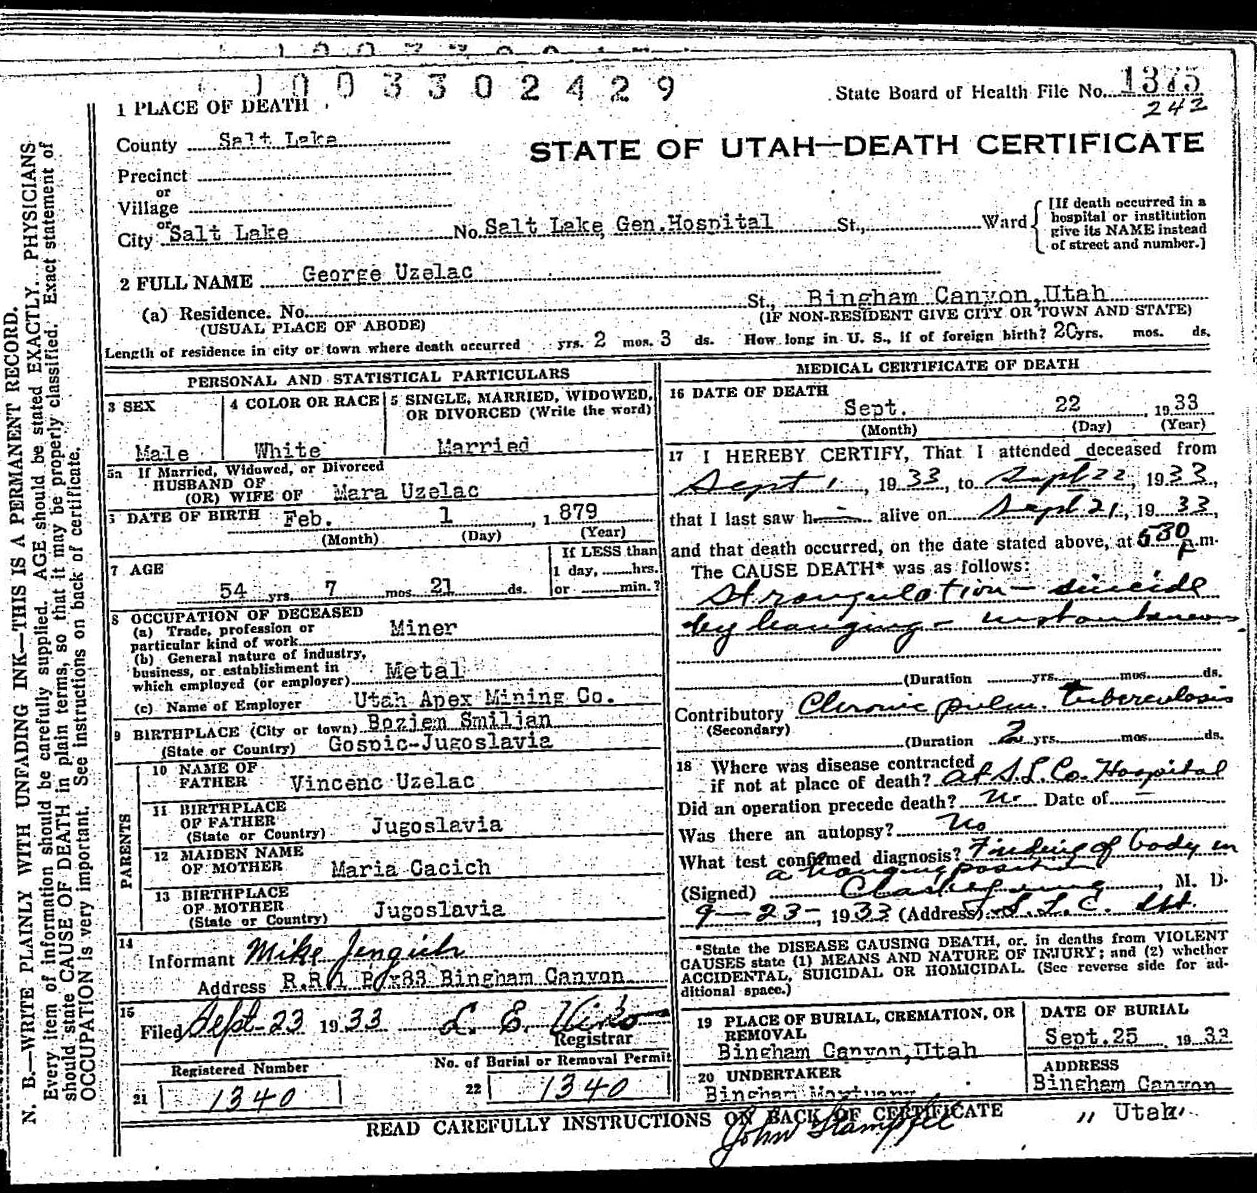 1003302429
State Board of Health File No. 1375
242
1 PLACE OF DEATH
County Salt Lake
STATE OF UTAH—DEATH CERTIFICATE
Precinct
or
Village
or
City Salt Lake No. Salt Lake Gen. Hospital St., Ward
[If death occurred in a hospital or institution give its NAME instead of street and number.]
2 FULL NAME George Uzelac
(a) Residence. No. St., Bingham Canyon, Utah
(USUAL PLACE OF ABODE) (IF NON-RESIDENT GIVE CITY OR TOWN AND STATE)
Length of residence in city or town where death occurred yrs. 2 mos. 3 ds. How long in U. S., if of foreign birth? 20 yrs. mos. ds.
PERSONAL AND STATISTICAL PARTICULARS
3 SEX
Male
4 COLOR OR RACE
White
5 SINGLE, MARRIED, WIDOWED, OR DIVORCED (Write the word)
Married
5a If Married, Widowed, or Divorced
HUSBAND OF
(OR) WIFE OF Mara Uzelac
6 DATE OF BIRTH Feb. 1, 1879
(Month) (Day) (Year)
7 AGE
54 yrs. 7 mos. 21 ds.
If LESS than
1 day, hrs.
or min.?
8 OCCUPATION OF DECEASED
(a) Trade, profession or
particular kind of work Miner
(b) General nature of industry,
business, or establishment in
which employed (or employer) Metal
(c) Name of Employer Utah Apex Mining Co.
9 BIRTHPLACE (City or town) Boziem Smiljan
(State or Country) Gospic-Jugoslavia
PARENTS
10 NAME OF
FATHER Vincenc Uzelac
11 BIRTHPLACE
OF FATHER
(State or Country) Jugoslavia
12 MAIDEN NAME
OF MOTHER Maria Cacich
13 BIRTHPLACE
OF MOTHER
(State or Country) Jugoslavia
14
Informant Mike
Address R.R.1 Box 83 Bingham Canyon
15
Filed Sept-23 1933 L. E.
Registrar
Registered Number
21 1340
No. of Burial or Removal Permit
22 1340
MEDICAL CERTIFICATE OF DEATH
16 DATE OF DEATH
Sept. 22, 1933
(Month) (Day) (Year)
17 I HEREBY CERTIFY, That I attended deceased from
Sept 1, 1933, to Sept 22, 1933,
that I last saw him alive on Sept 21, 1933,
and that death occurred, on the date stated above, at 530 p.m.
The CAUSE DEATH* was as follows:
Strangulation — suicide
by hanging - instantaneous.
(Duration yrs. mos. ds.
Contributory Chronic pulm. tuberculosis
(Secondary)
(Duration 2 yrs. mos. ds.
18 Where was disease contracted
if not at place of death? at S.L. Co. Hospital
Did an operation precede death? No Date of
Was there an autopsy? No
What test confirmed diagnosis? Finding of body in
a hanging position
(Signed) M. D.
9-23-, 1933 (Address)
*State the DISEASE CAUSING DEATH, or, in deaths from VIOLENT
CAUSES state (1) MEANS AND NATURE OF INJURY; and (2) whether
ACCIDENTAL, SUICIDAL OR HOMICIDAL. (See reverse side for ad-
ditional space.)
19 PLACE OF BURIAL, CREMATION, OR
REMOVAL
Bingham Canyon, Utah
DATE OF BURIAL
Sept. 25, 1933
20 UNDERTAKER
Bingham Mortuary
John
ADDRESS
Bingham Canyon
,, Utah
READ CAREFULLY INSTRUCTIONS ON BACK OF CERTIFICATE
N. B.—WRITE PLAINLY WITH UNFADING INK—THIS IS A PERMANENT RECORD.
Every item of information should be carefully supplied. AGE should be stated EXACTLY. PHYSICIANS
should state CAUSE OF DEATH in plain terms, so that it may be properly classified. Exact statement of
OCCUPATION is very important. See instructions on back of certificate.